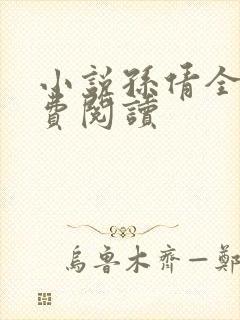 小說孫倩全
費閱讀
烏魯木齊—鄭